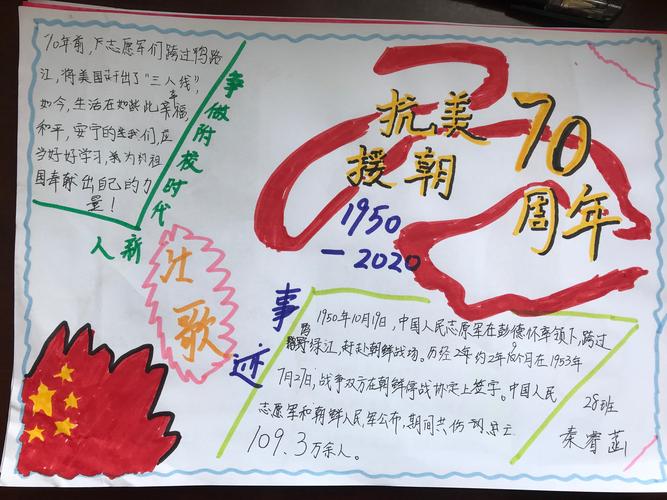 70年前，志愿军们跨过鸭路
江，将美国赶出了“三八线”，
如今，生活在如此幸福，
和平，安宁的我们，应
当好好学习，来为祖
国奉献出自己的力
量！
争做附校时代
新人
壮歌
抗美
援朝
70
周年
1950
—2020
事迹
1950年10月19日，中国人民志愿军在彭德怀率领下，跨过
绿江，赶赴朝鲜战场。历经2年约2年9个月在1953年
7月27日，战争双方在朝鲜停战协定上签字。中国人民
志愿军和朝鲜人民军公布，期间共伤
109.3万余人。
28班
秦